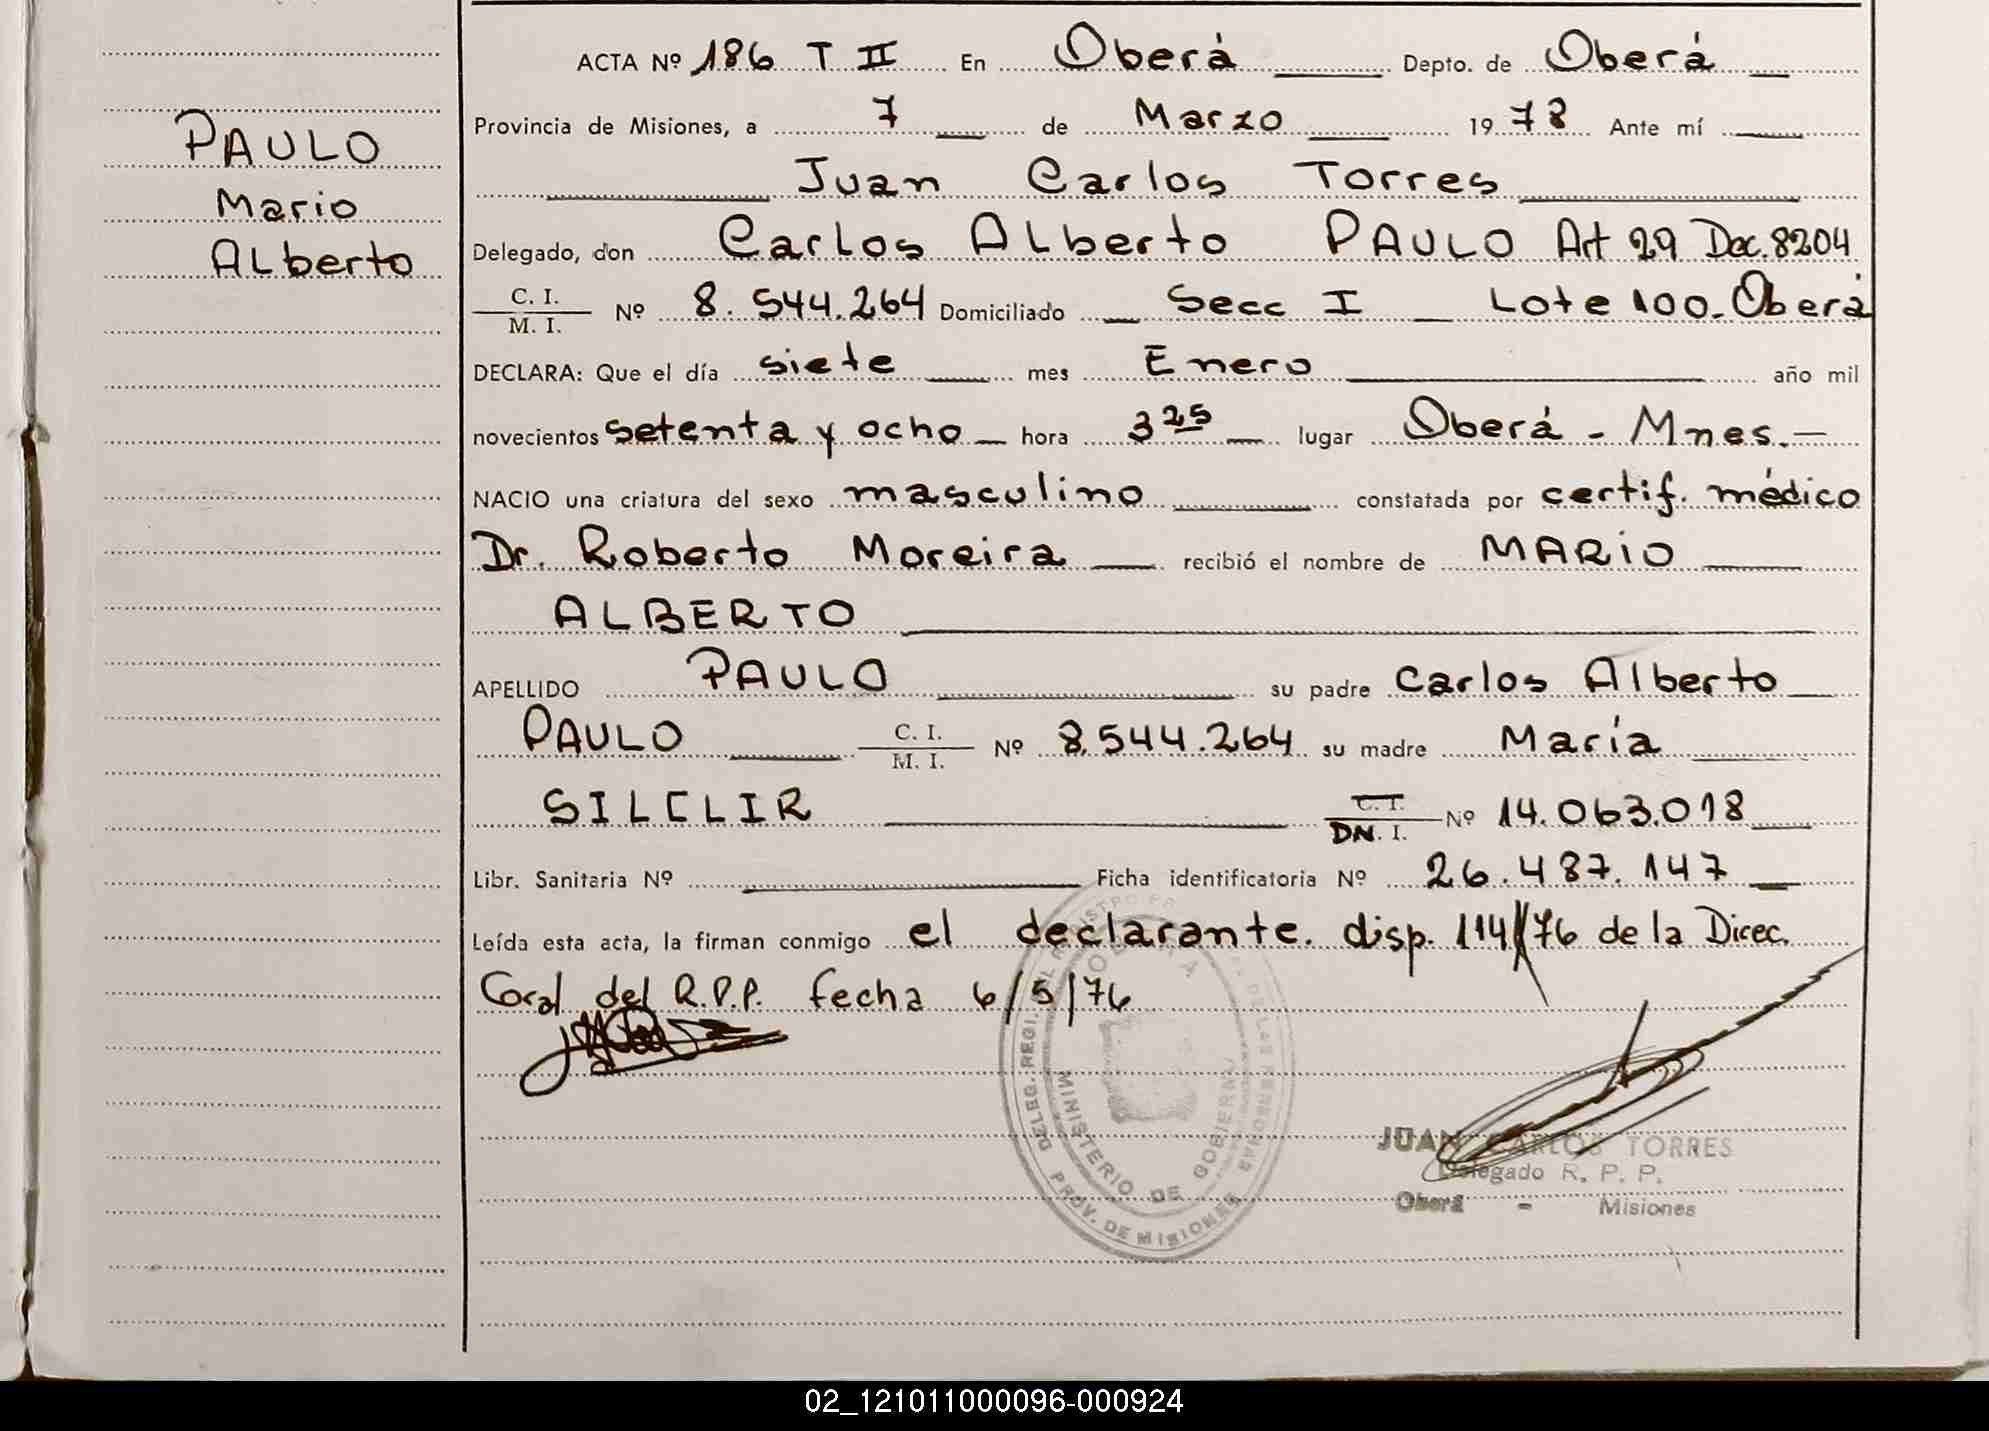 PAULO
Mario
Alberto
ACTA Nº 186 T II En Oberá Depto. de Oberá
Provincia de Misiones, a 7 de Marzo 1978 Ante mí
Juan Carlos Torres
Delegado, don Carlos Alberto PAULO Art 29 Dec. 8204
C. I.
M. I. Nº 8.544.264 Domiciliado Secc I Lote 100. Oberá
DECLARA: Que el día siete mes Enero año mil
novecientos setenta y ocho hora 3 25 lugar Oberá - Mnes. -
NACIO una criatura del sexo masculino constatada por certif. médico
Dr. Roberto Moreira recibió el nombre de MARIO
ALBERTO
APELLIDO PAULO su padre Carlos Alberto
PAULO C. I. M. I. Nº 8.544.264 su madre María
SILCLIR C. I. DN. I. Nº 14.063.018
Libr. Sanitaria Nº Ficha identificatoria Nº 26.487.147
Leída esta acta, la firman conmigo el declarante. disp. 114/76 de la Direc.
Gral del R.P.P. fecha 6/5/76
MINISTERIO DE GOBIERNO
PROV. DE MISIONES
JUAN CARLOS TORRES
Delegado R. P. P.
Oberá - Misiones
02_121011000096-000924